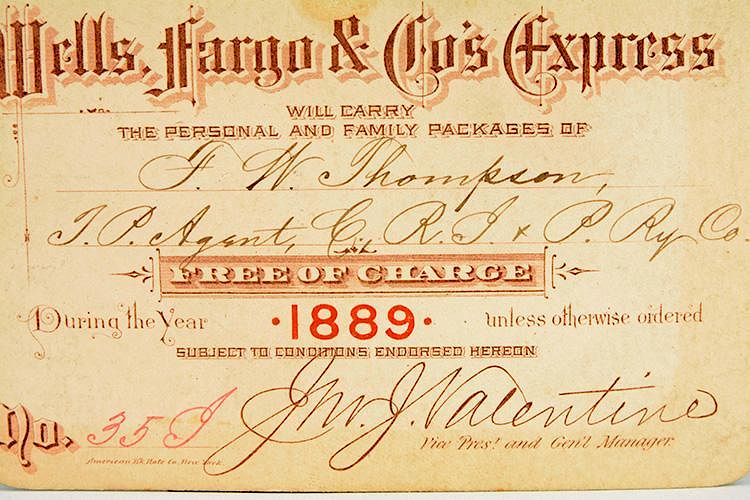 Wells, Fargo & Co's Express
WILL CARRY
THE PERSONAL AND FAMILY PACKAGES OF
F. W. Thompson,
T. P. Agent, C., R. I. & P. Ry Co.
FREE OF CHARGE
During the Year ·1889· unless otherwise ordered
SUBJECT TO CONDITIONS ENDORSED HEREON
No. 35 Jno. J. Valentine
Vice Pres.t and Gen'l Manager
American Bk. Note Co. New York.